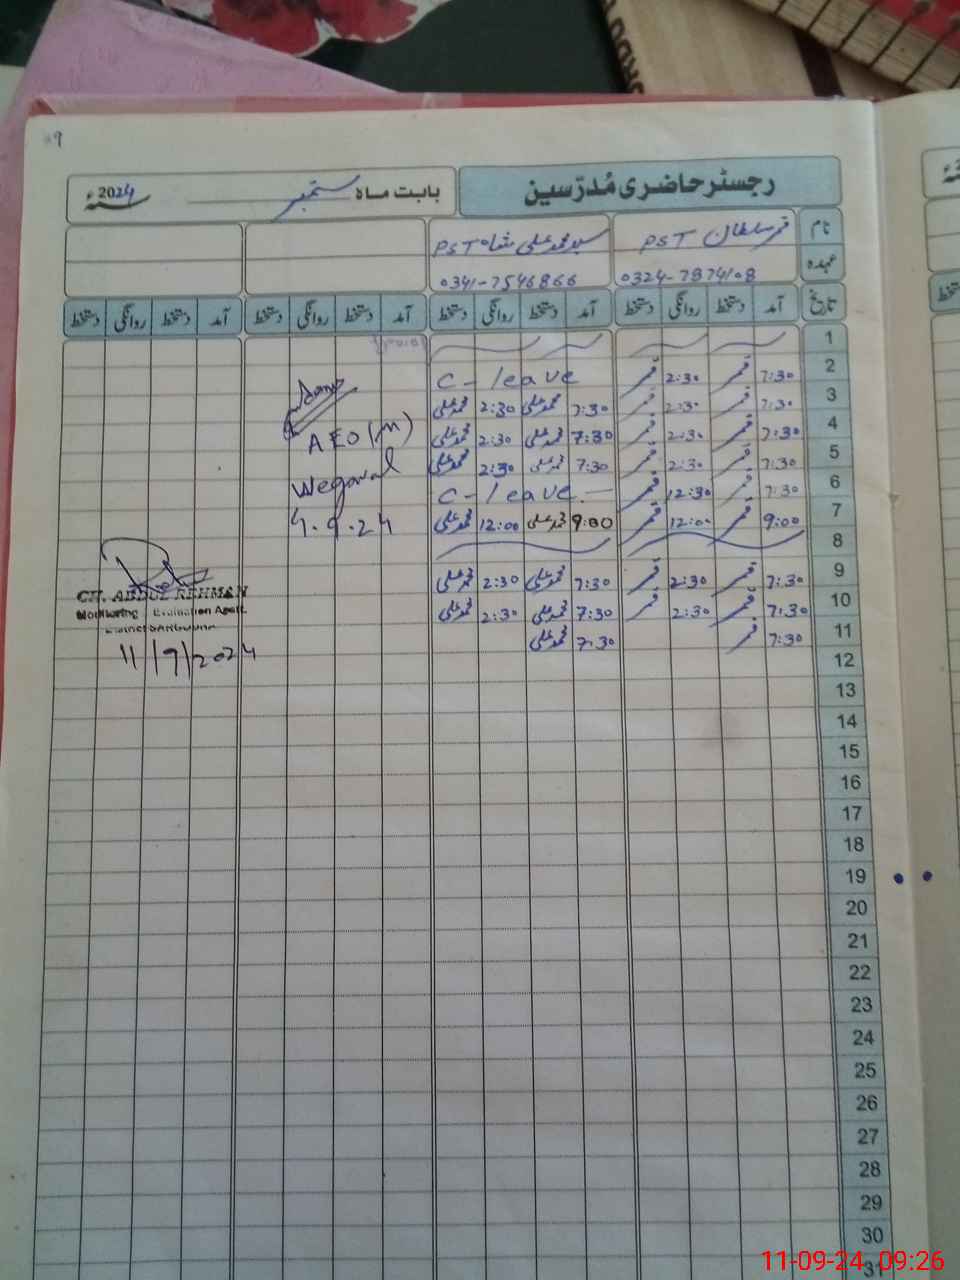 رجسٹر حاضری مُدرّسین
بابت ماہ ستمبر 2024
نام قمر سلطان PST سید محمد علی شاہ PST
عہدہ 0324-7874108 0341-7546866
تاریخ آمد دستخط روانگی دستخط آمد دستخط روانگی دستخط آمد دستخط روانگی دستخط آمد دستخط روانگی دستخط
1
2 7:30 قمر 2:30 قمر C-leave
3 7:30 قمر 2:30 قمر 7:30 محمد علی 2:30 محمد علی
4 7:30 قمر 2:30 قمر 7:30 محمد علی 2:30 محمد علی
5 7:30 قمر 2:30 قمر 7:30 محمد علی 2:30 محمد علی
6 7:30 قمر 12:30 قمر C-leave
7 9:00 قمر 12:00 قمر 9:00 محمد علی 12:00 محمد علی
8
9 7:30 قمر 2:30 قمر 7:30 محمد علی 2:30 محمد علی
10 7:30 قمر 2:30 قمر 7:30 محمد علی 2:30 محمد علی
11 7:30 قمر 7:30 محمد علی
12
13
14
15
16
17
18
19
20
21
22
23
24
25
26
27
28
29
30
31
AEO (M)
Wegowal
4.9.24
CH. ABDUL REHMAN
Monitoring Evaluation Asstt.
District SARGODHA
11/9/2024
11-09-24 09:26